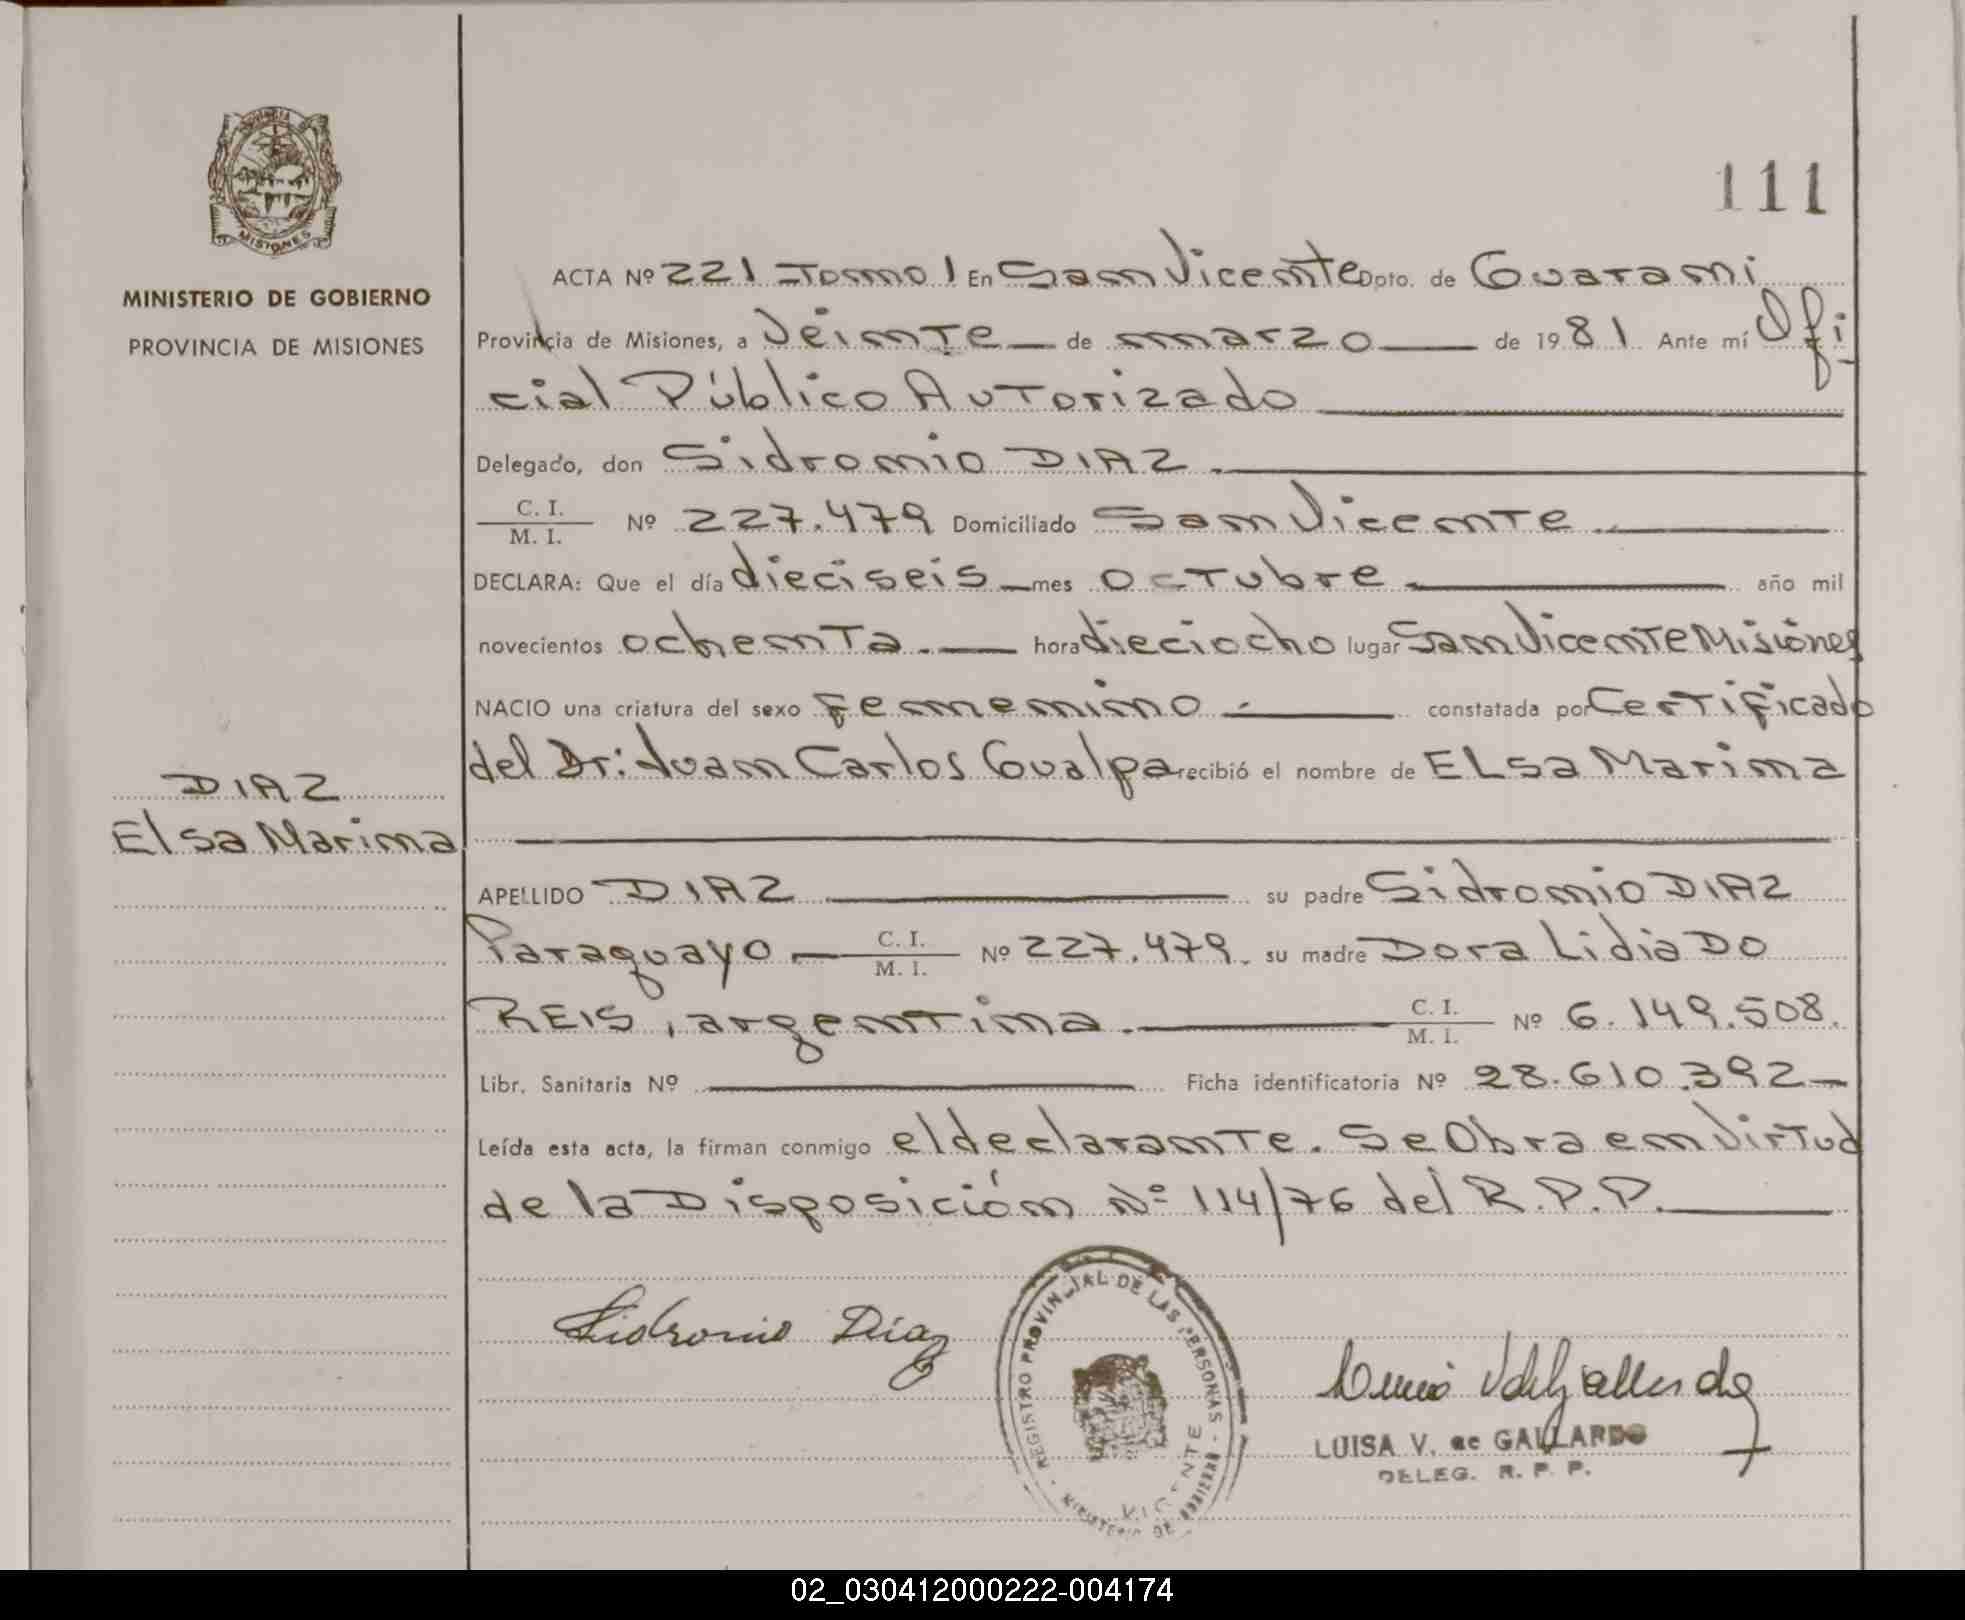 PROVINCIA
MISIONES
MINISTERIO DE GOBIERNO
PROVINCIA DE MISIONES
111
ACTA Nº 221 Tomo I En San Vicente Dpto. de Guaraní
Provincia de Misiones, a Veinte de marzo de 1981. Ante mí Ofi
cial Público Autorizado
Delegado, don Sidronio DIAZ.
C. I.
M. I. Nº 227.479 Domiciliado San Vicente
DECLARA: Que el día dieciseis mes octubre año mil
novecientos ochenta.- hora dieciocho lugar San Vicente Misiones
NACIO una criatura del sexo femenino.- constatada por Certificado
del Dr: Juan Carlos Gualpa recibió el nombre de ELsa Marina
DIAZ
Elsa Marina
APELLIDO DIAZ su padre Sidronio DIAZ
Paraguayo C. I. M. I. Nº 227.479. su madre Dora Lidia DO
REIS, argentina. C. I. M. I. Nº 6.149.508.
Libr. Sanitaria Nº Ficha identificatoria Nº 28.610.392-
Leída esta acta, la firman conmigo el declarante. Se Obra en Virtud
de la Disposición Nº 114/76 del R.P.P.
Sidronio Díaz
REGISTRO PROVINCIAL DE LAS PERSONAS
MINISTERIO DE GOBIERNO
VICENTE
LUISA V. de GALLARDO
DELEG. R. P. P.
02_030412000222-004174